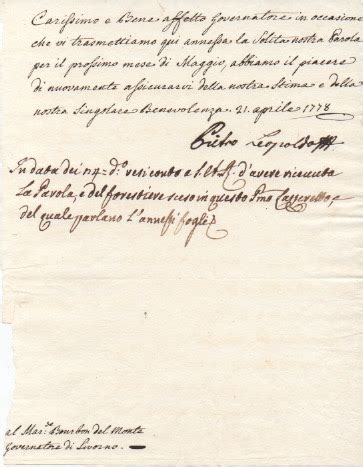 Carissimo e Bene affetto Governatore in occasione
che vi trasmettiamo qui annessa la Solita nostra Parola
per il prossimo mese di Maggio, abbiamo il piacere
di nuovamente assicurarvi della nostra Stima e della
nostra Singolare Benevolenza. 21. aprile 1778
Pietro Leopoldo
In data dei 24 d.º resi conto a S.A.R. d'avere ricevuta
La Parola, e del forestiere sceso in questo
del quale parlano l'annessi fogli
al Mar.se Bourbon del Monte
Governatore di Livorno.